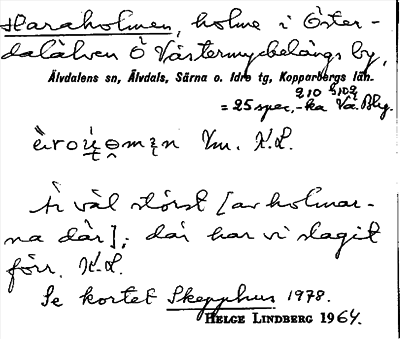 Haraholmen, holme i Öster-
dalälven Ö Västermyckelängs by,
Älvdalens sn, Älvdals, Särna o. Idre tg, Kopparbergs län.
210 5102
= 25 spec, -ka Vä. Blg.
Vm. K.L.
Är väl störst [av holmar-
na där]; där har vi slagit
förr. K.L.
Se kortet Skepphus 1978.
HELGE LINDBERG 1964.